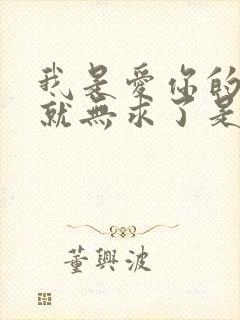 我是愛你的
就無求了是
董興波